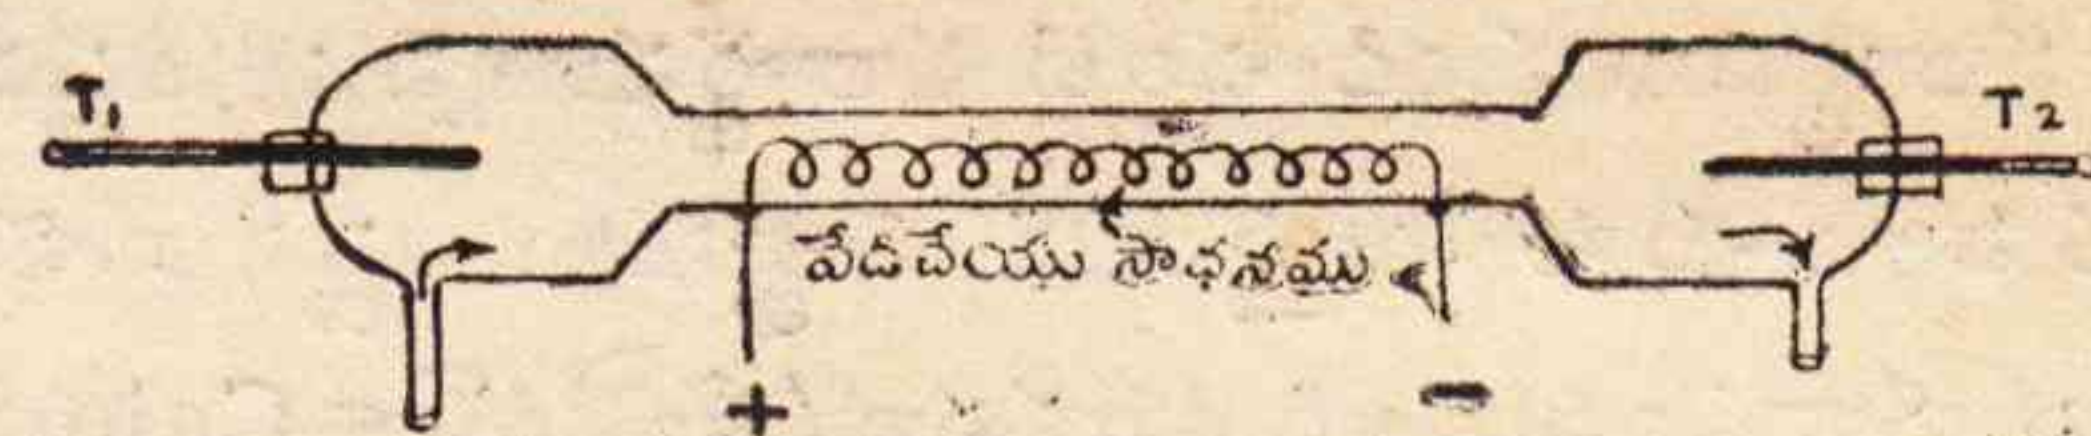 T₁
T₂
వేడిచేయు సాధనము
+ -